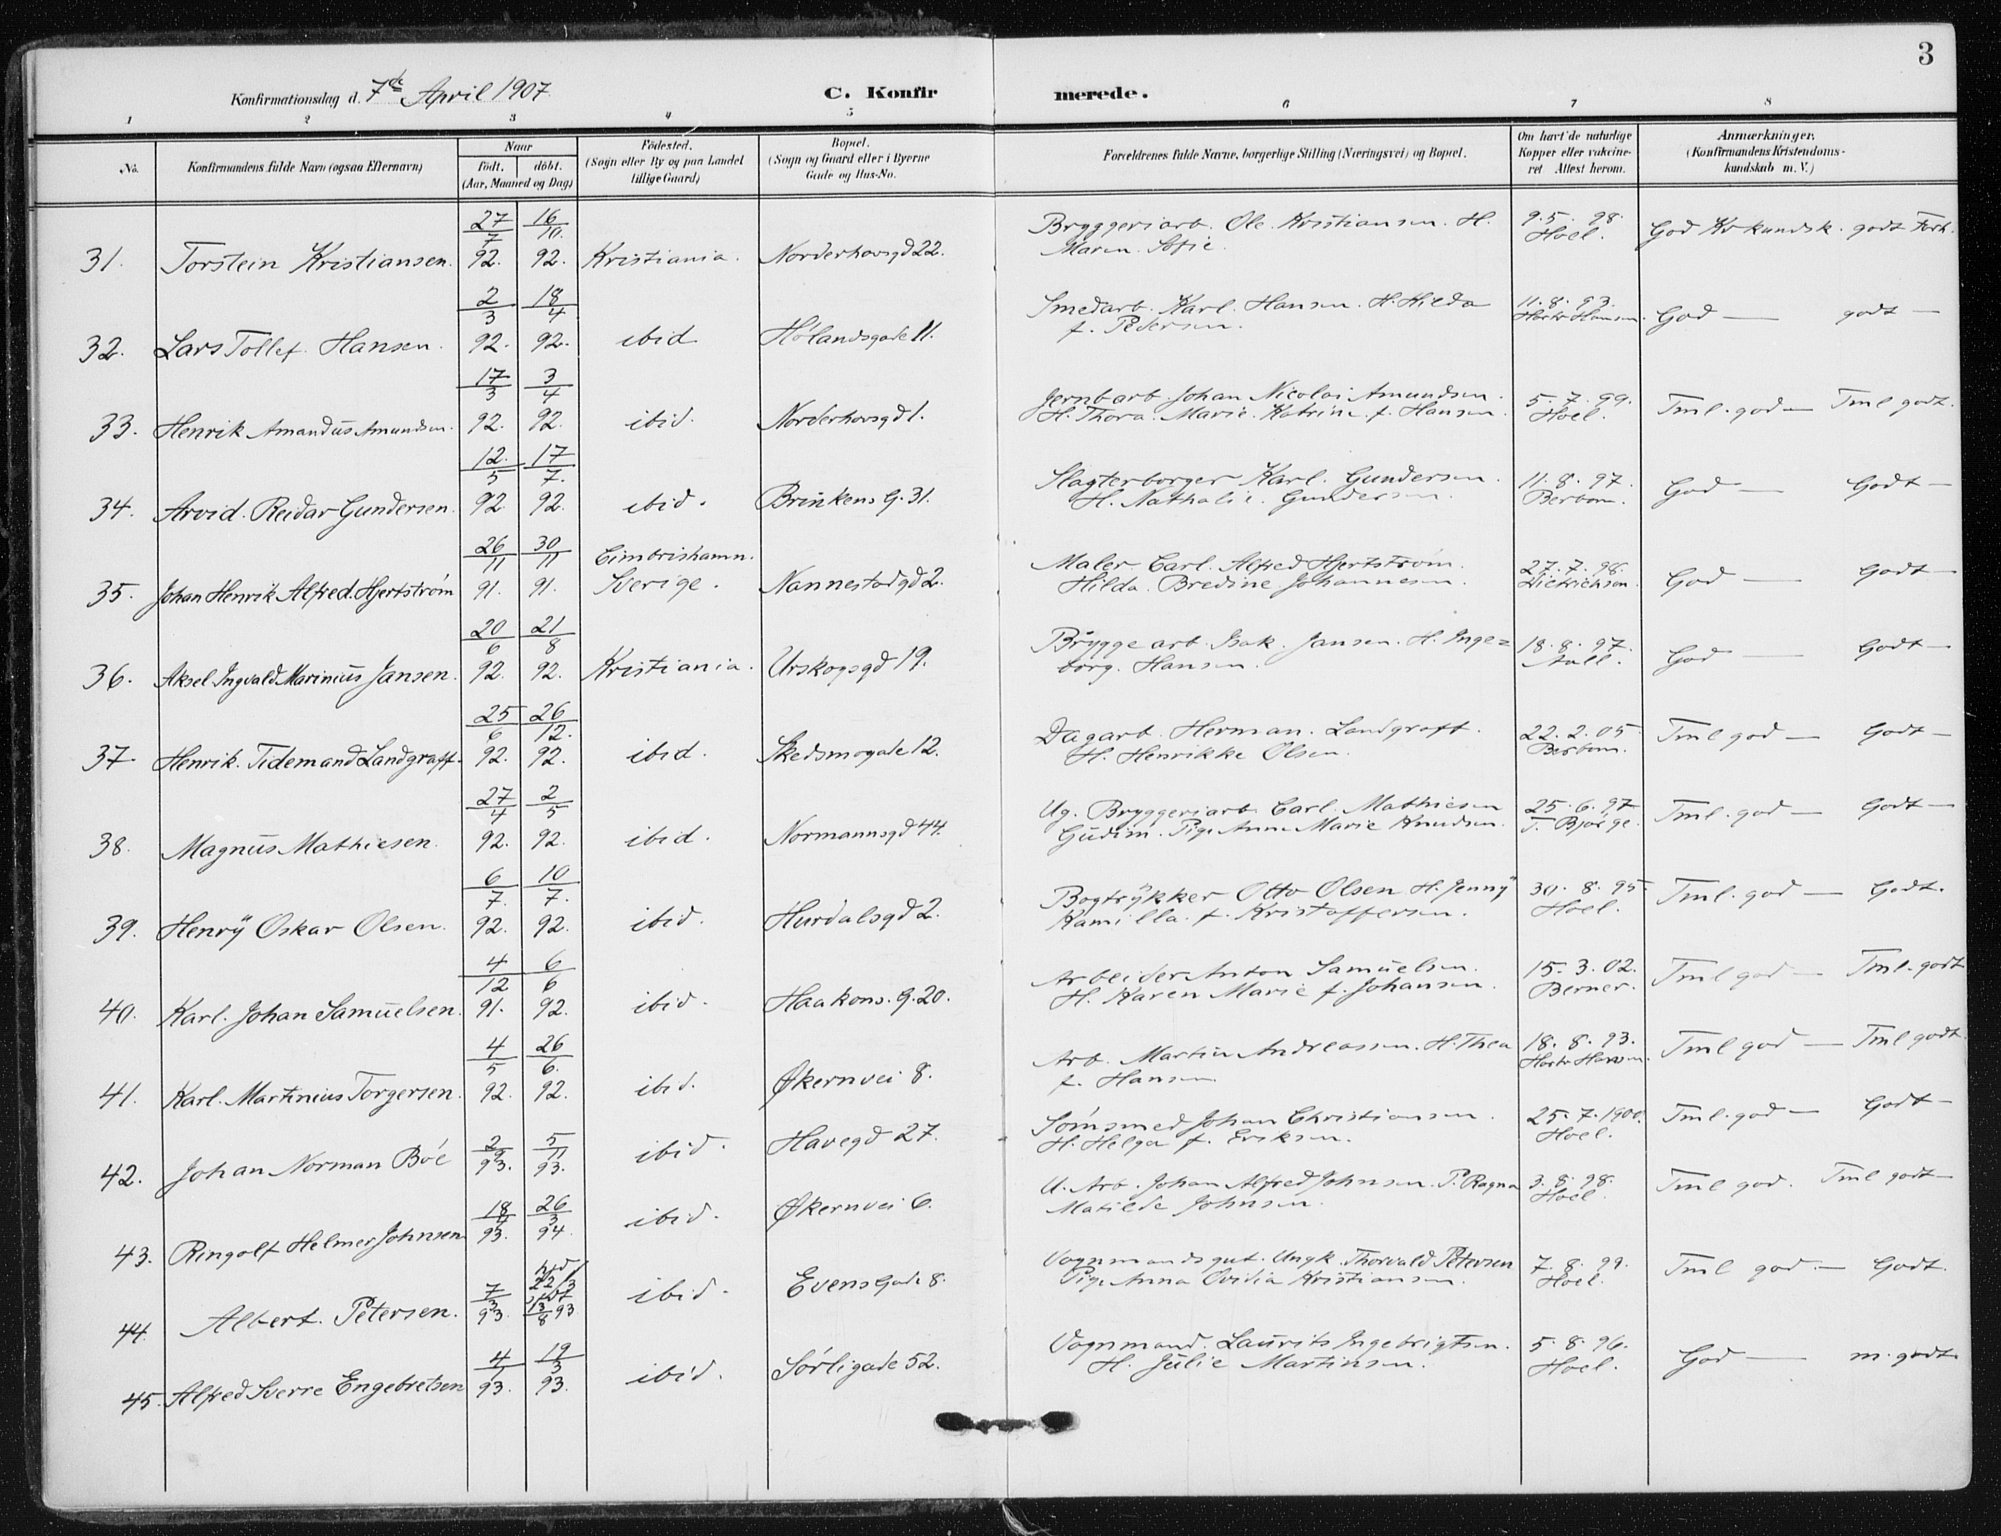 3
Konfirmationsdag d. 7de April 1907
C. Konfirmerede.
1 2 3 4 5 6 7 8
No. Konfirmandens fulde Navn (ogsaa Efternavn) Naar födt. döbt. (Aar, Maaned og Dag)
Födested. (Sogn eller By og paa Landet tillige Gaard)
Bopæl. (Sogn og Gaard eller i Byerne Gade og Hus-No.
Forældrenes fulde Navne, borgerlige Stilling (Næringsvei) og Bopæl.
Om havt de naturlige Kopper eller vakcineret Attest herom.
Anmærkninger. (Konfirmandens Kristendomskundskab m. V.)
31. Torstein Kristiansen. 27/7 92. 16/10. 92. Kristiania. Norderhovsgd 22. Bryggeriarb. Ole Kristiansen. H. Maren Sofie. 9.5.98. Hoel. God Kr kundsk. godt Forh.
32. Lars Tollef. Hansen. 2/3 92. 18/4 92. ibid Hölandsgade 11. Smedarb. Karl. Hansen. H. Hilda f. Pedersen. 11.8.93. God — godt —
33. Henrik Amandus Amundsen. 17/3 92. 3/4 92. ibid. Norderhovsgd 1. Jernbarb. Johan Nicolai Amundsen. H. Thora. Marie. Katrine f. Hansen. 5.7.99. Hoel. Tml. god — Tml godt.
34. Arvid. Reidar Gundersen. 12./5 92. 17/7. 92. ibid. Brinkens G. 31. Slagterborger Karl. Gundersen. H. Nathalie. Gundersen. 11.8.97. Berbom. God — Godt —
35. Johan Henrik Alfred. Hjertström 26/11 91. 30/11 91. Cimbrishamn. Sverige. Nannestadgd 2. Maler Carl. Alfred Hjertström. Hilda. Bredine Johannesen. 27.7.98. Dietrichson. God — Godt —
36. Aksel Ingvald Marinius Jansen. 20/6 92. 21/8 92. Kristiania. Urskogsgd 19. Bryggearb. Isak. Jansen. H. Ingeborg. Hansen. 18.8.97. God — Godt —
37. Henrik. Tidemand Landgraff. 25/6 92. 26/12. 92. ibid. Skedsmogade 12. Dagarb. Herman. Landgraff. H. Henrikke Olsen. 22.2.05. Berbom. Tml god — Godt —
38. Magnus Mathiesen. 27/4 92. 2/5 92. ibid. Normannsgd 44. Ug. Bryggeriarb. Carl. Mathiesen Gudim. Pige Anne Marie Knudsen. 25.6.97 T. Bjørge. Tml. god — Godt —
39. Henry Oskar Olsen. 6/7. 92. 10/7. 92. ibid. Hurdalsgd 2. Bogtrykker Otto Olsen H. Jenny Kamilla. f. Kristoffersen. 30.8.95. Hoel. Tml. god — Godt.
40. Karl. Johan Samuelsen. 4/12 91. 6/6 92. ibid. Haakons. G. 20. Arbeider Anton Samuelsen. H. Karen Marie f. Johansen. 15.3.02. Berner. Tml god — Tml. godt
41. Karl. Martinius Torgersen. 4/5 92. 26/6. 92. ibid. Økernvei 8. Arb. Martin Andreassen. H. Thea f. Hansen. 18.8.93. Tml god — Tml godt.
42. Johan Norman Böe 93. 5/11 93. ibid. Havegd 27. Sömsmed Johan Christiansen. H. Helga f. Eriksen. 25.7.1900. Hoel. Tml. god — Godt —
43. Ringolf Helmer Johnsen 18/4 93. 26/3 94. ibid. Økernvei 6. U. Arb. Johan Alfred Johnsen. P. Ragna Matilde Johnsen. 3.8.98. Hoel. Tml god. Tml godt —
44. Albert. Petersen. 7/3 93. 22/3 13/8 93 ibid. Evens Gade 8. Vognmandsgut. Ungk. Thorvald Petersen Pige Anna Ovidia Kristiansen. 7.8.99. Hoel. Tml god. — Godt.
45. Alfred Sverre Engebretsen 4/1 93. 19/3 93. ibid. Sörligade 52. Vognmand. Laurits Ingebrigtsen. H. Julie Martinsen. 5.8.96. Hoel. God — m. godt